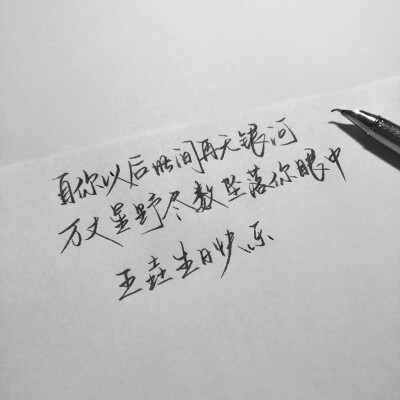 自你以后世间再无银河
万丈星野尽数坠落你眼中
王垚生日快乐